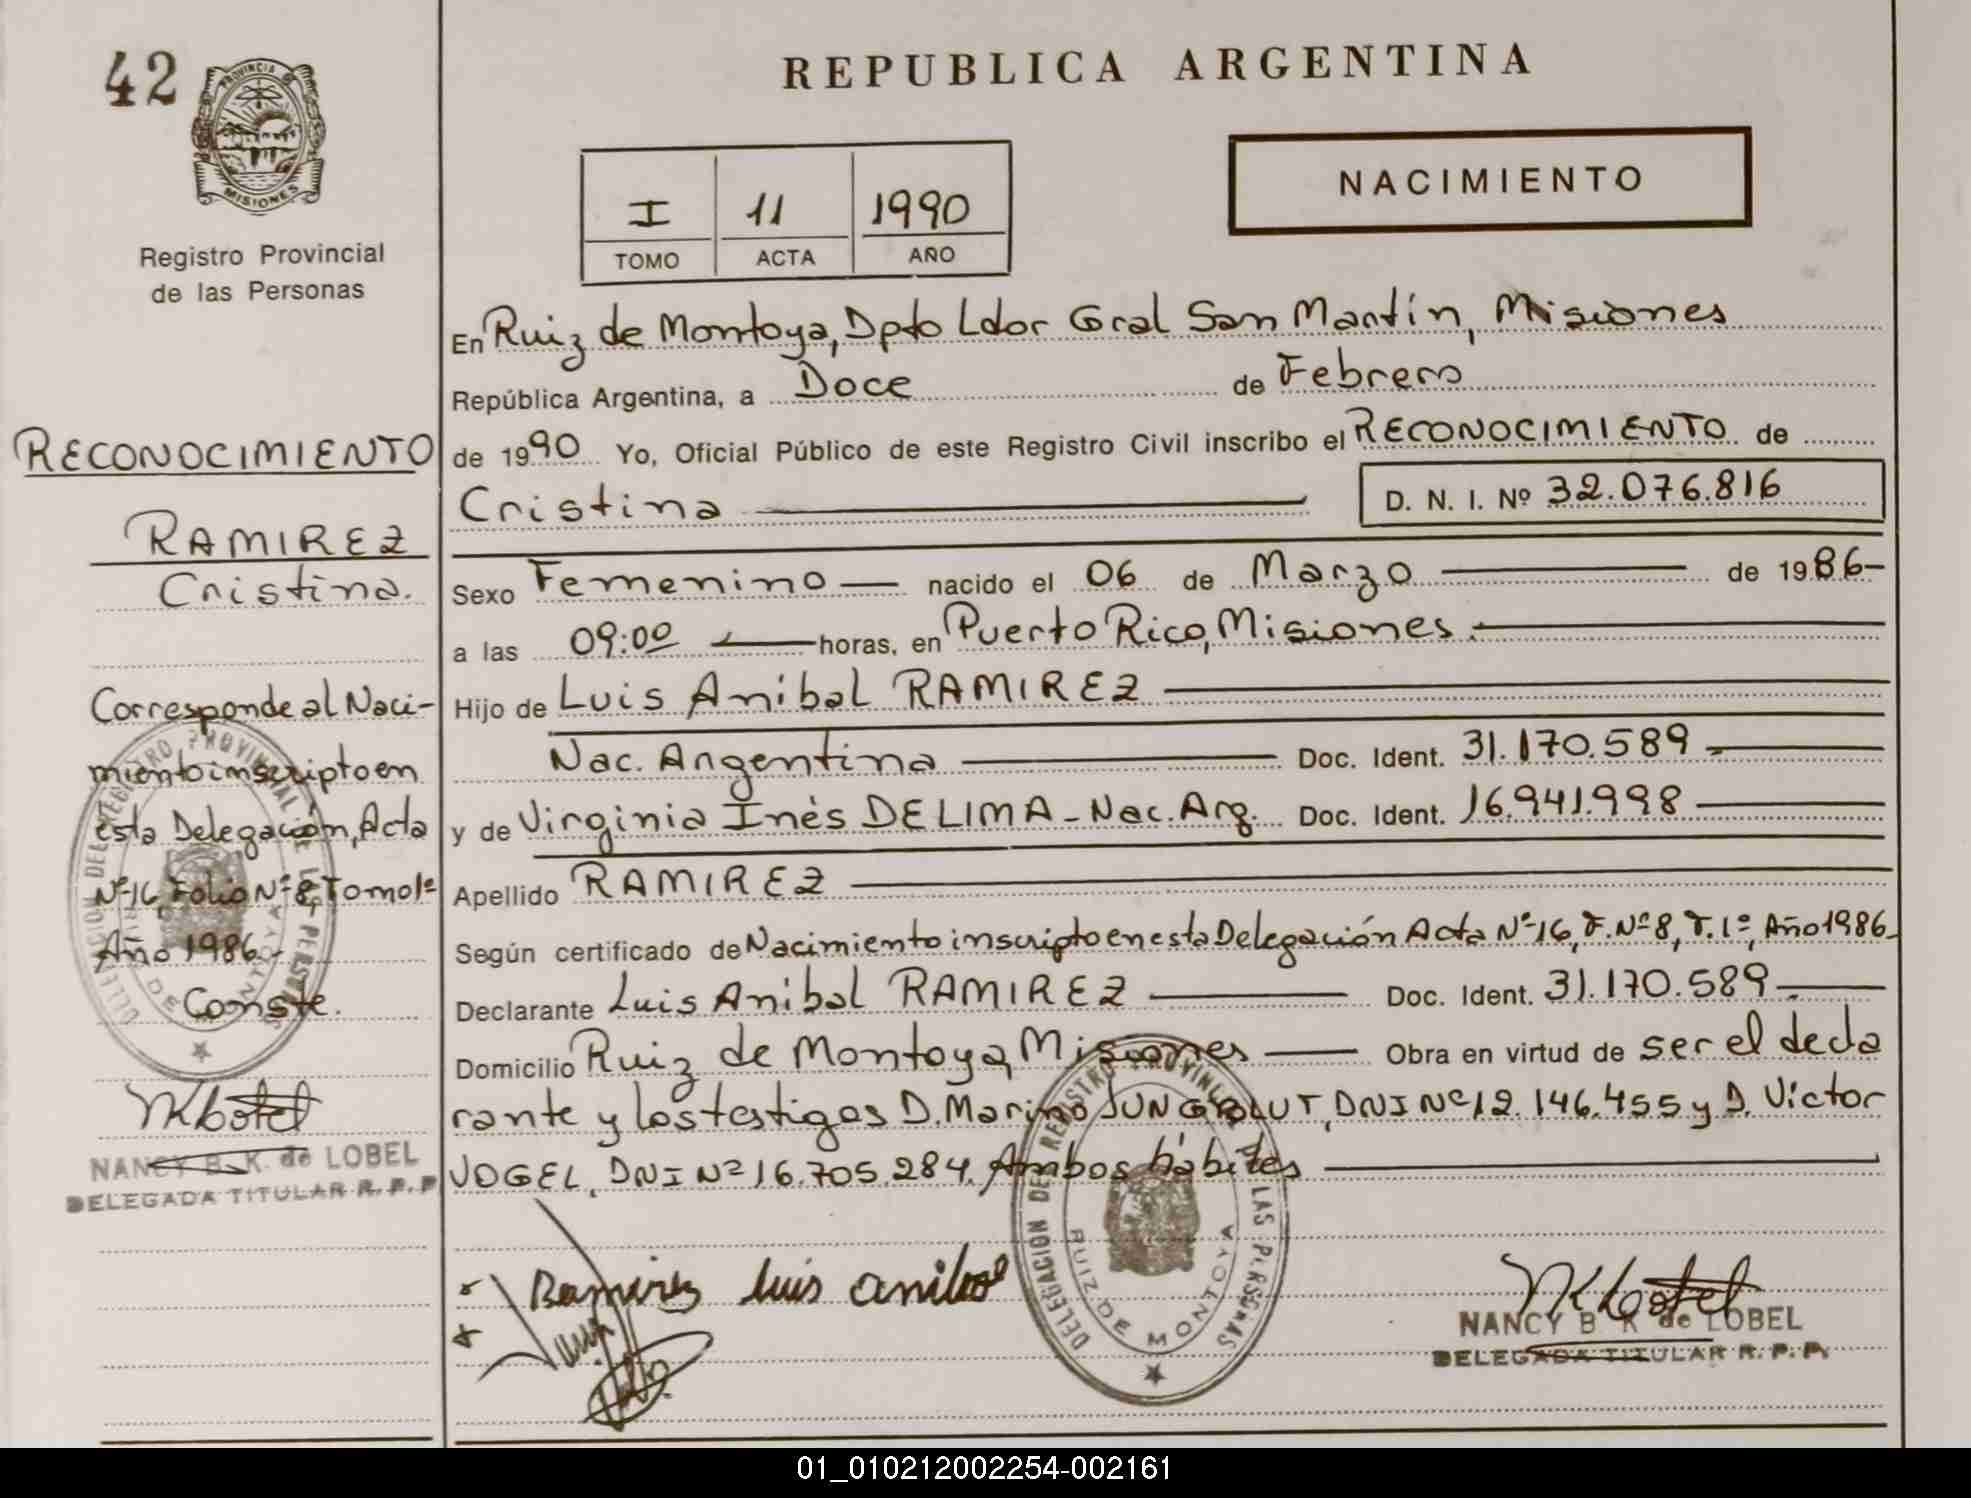 42
PROVINCIA DE
MISIONES
Registro Provincial
de las Personas
RECONOCIMIENTO
RAMIREZ
Cristina.
Corresponde al Naci-
miento inscripto en
esta Delegación, Acta
Nº 16, Folio Nº 8, Tomo 1º
Año 1986.-
Conste.
DELEGACION DEL REGISTRO PROVINCIAL DE LAS PERSONAS
RUIZ DE MONTOYA
NANCY B. K. de LOBEL
DELEGADA TITULAR R. P. P.
REPUBLICA ARGENTINA
I 11 1990
TOMO ACTA AÑO
NACIMIENTO
En Ruiz de Montoya, Dpto Ldor Gral San Martín, Misiones
República Argentina, a Doce de Febrero
de 1990 Yo, Oficial Público de este Registro Civil inscribo el RECONOCIMIENTO de
Cristina D. N. I. Nº 32.076.816
Sexo Femenino nacido el 06 de Marzo de 1986-
a las 09:00 horas, en Puerto Rico, Misiones.
Hijo de Luis Anibal RAMIREZ
Nac. Argentina Doc. Ident. 31.170.589
y de Virginia Inés DE LIMA - Nac. Arg. Doc. Ident. 16.941.998
Apellido RAMIREZ
Según certificado de Nacimiento inscripto en esta Delegación Acta Nº 16, F. Nº 8, T. 1º, Año 1986
Declarante Luis Anibal RAMIREZ Doc. Ident. 31.170.589
Domicilio Ruiz de Montoya, Misiones Obra en virtud de ser el decla
rante y los testigos D. Marino JUNGBLUT, DNI Nº 12.146.455 y D. Víctor
VOGEL, DNI Nº 16.705.284. Ambos hábiles
Ramirez luis anibal
DELEGACION DEL REGISTRO PROVINCIAL DE LAS PERSONAS
RUIZ DE MONTOYA
NANCY B. K. de LOBEL
DELEGADA TITULAR R. P. P.
01_010212002254-002161